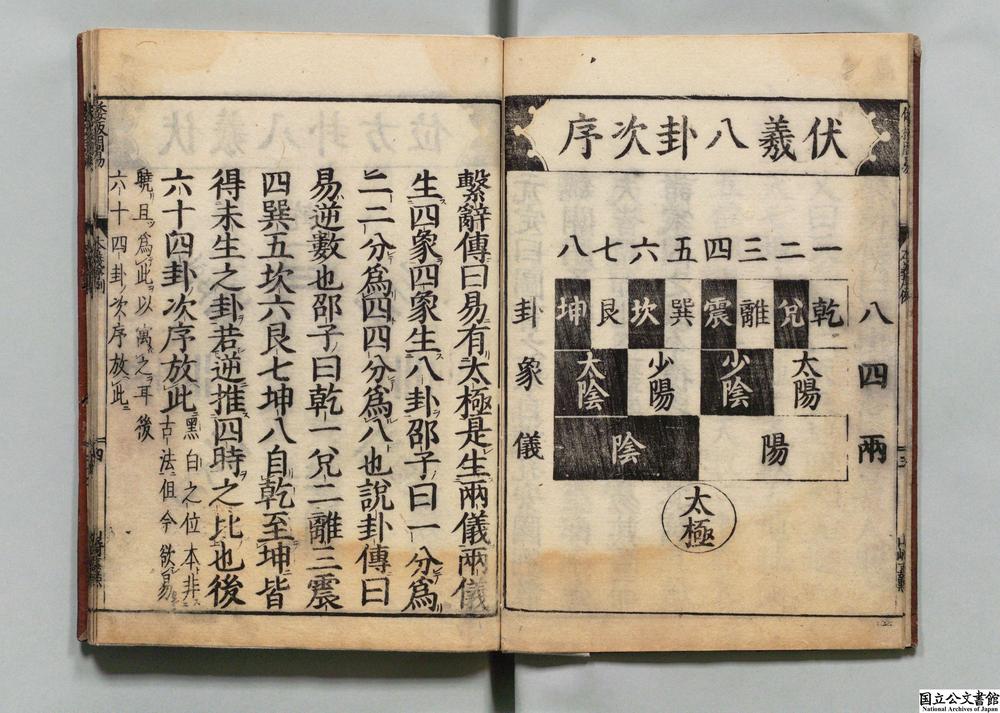 伏羲八卦次序
一二三四五六七八
乾兌離震巽坎艮坤
太陽少陰少陽太陰
陽陰
太極
八四兩
卦象儀
繫辭傳曰易有太極是生兩儀兩儀
生四象四象生八卦邵子曰一分爲
二二分爲四四分爲八也說卦傳曰
易逆數也邵子曰乾一兌二離三震
四巽五坎六艮七坤八自乾至坤皆
得未生之卦若逆推四時之比也後
六十四卦次序放此黑白之位本非
古法但今欲易
曉且爲此以寓之耳後
六十四卦次序放此
四
国立公文書館
National Archives of Japan